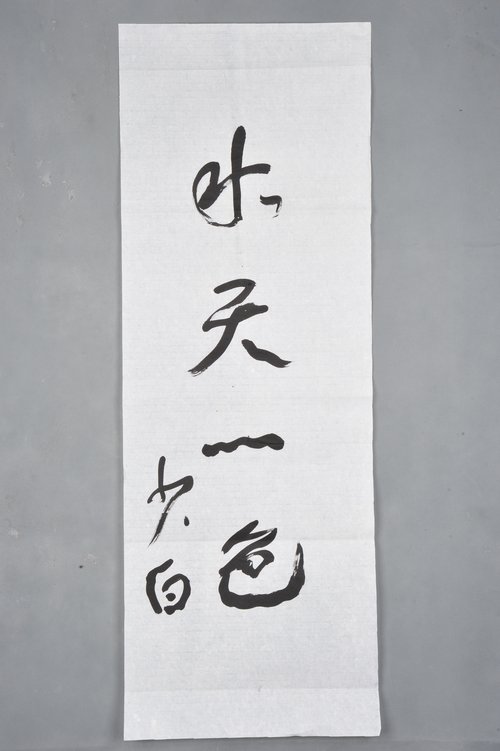 水天一色
少白